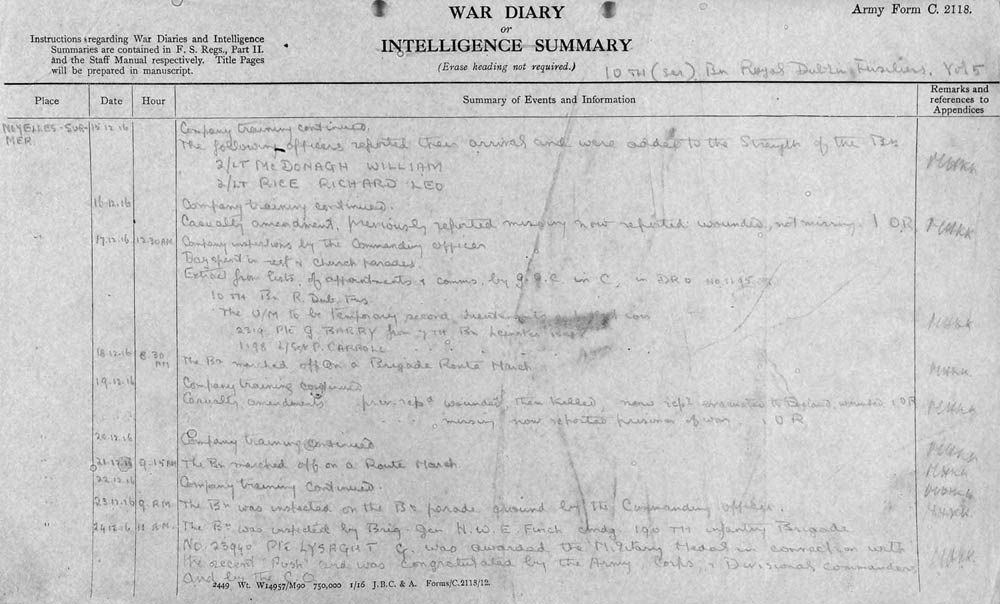 WAR DIARY
or
INTELLIGENCE SUMMARY
(Erase heading not required.)
Army Form C. 2118.
Instructions regarding War Diaries and Intelligence
Summaries are contained in F. S. Regs., Part II.
and the Staff Manual respectively. Title Pages
will be prepared in manuscript.
10TH (Ser) Bn Royal Dublin Fusiliers. Vol 5
Place Date Hour Summary of Events and Information Remarks and
references to
Appendices
NOYELLES-SUR- 15.12.16 Company training continued.
MER The following officers reported their arrival and were added to the Strength of the Bn
2/LT McDONAGH WILLIAM
2/LT RICE RICHARD LEO
16.12.16 Company training continued.
Casualty amendment, previously reported missing now reported wounded, not missing. 1 OR
17.12.16 Company inspections by the Commanding Officer
Day spent in rest & church parades.
Extract from lists of appointments & comms. by G.O.C. in C, in DRO No. 1195
10TH Bn R. Dub. Fus
The U/M to be temporary second
2319 Pte G. BARRY from 7TH Bn Leinster
1198 L/Sgt P. CARROLL
18.12.16 8.30 AM The Bn marched off on a Brigade Route March
19.12.16 Company training continued
Casualty amendments prev. repd wounded, then killed, now repd evacuated to England wounded 1 OR
missing now reported prisoner of war 1 OR
20.12.16 Company training continued
21.12.16 9.15 AM The Bn marched off on a Route March.
22.12.16 Company training continued.
23.12.16 9 A.M. The Bn was inspected on the Bn parade ground by the Commanding Officer.
" 24.12.16 11 A.M. The Bn was inspected by Brig-Gen H.W.E. Finch cmdg. 190TH Infantry Brigade
No 23940 Pte LYSAGHT G. was awarded the Military Medal in connection with
the second 'Push' and was congratulated by the Army, Corps, & Divisional commanders
and by the C.O.
2449 Wt. W14957/M90 750,000 1/16 J.B.C. & A. Forms/C.2118/12.